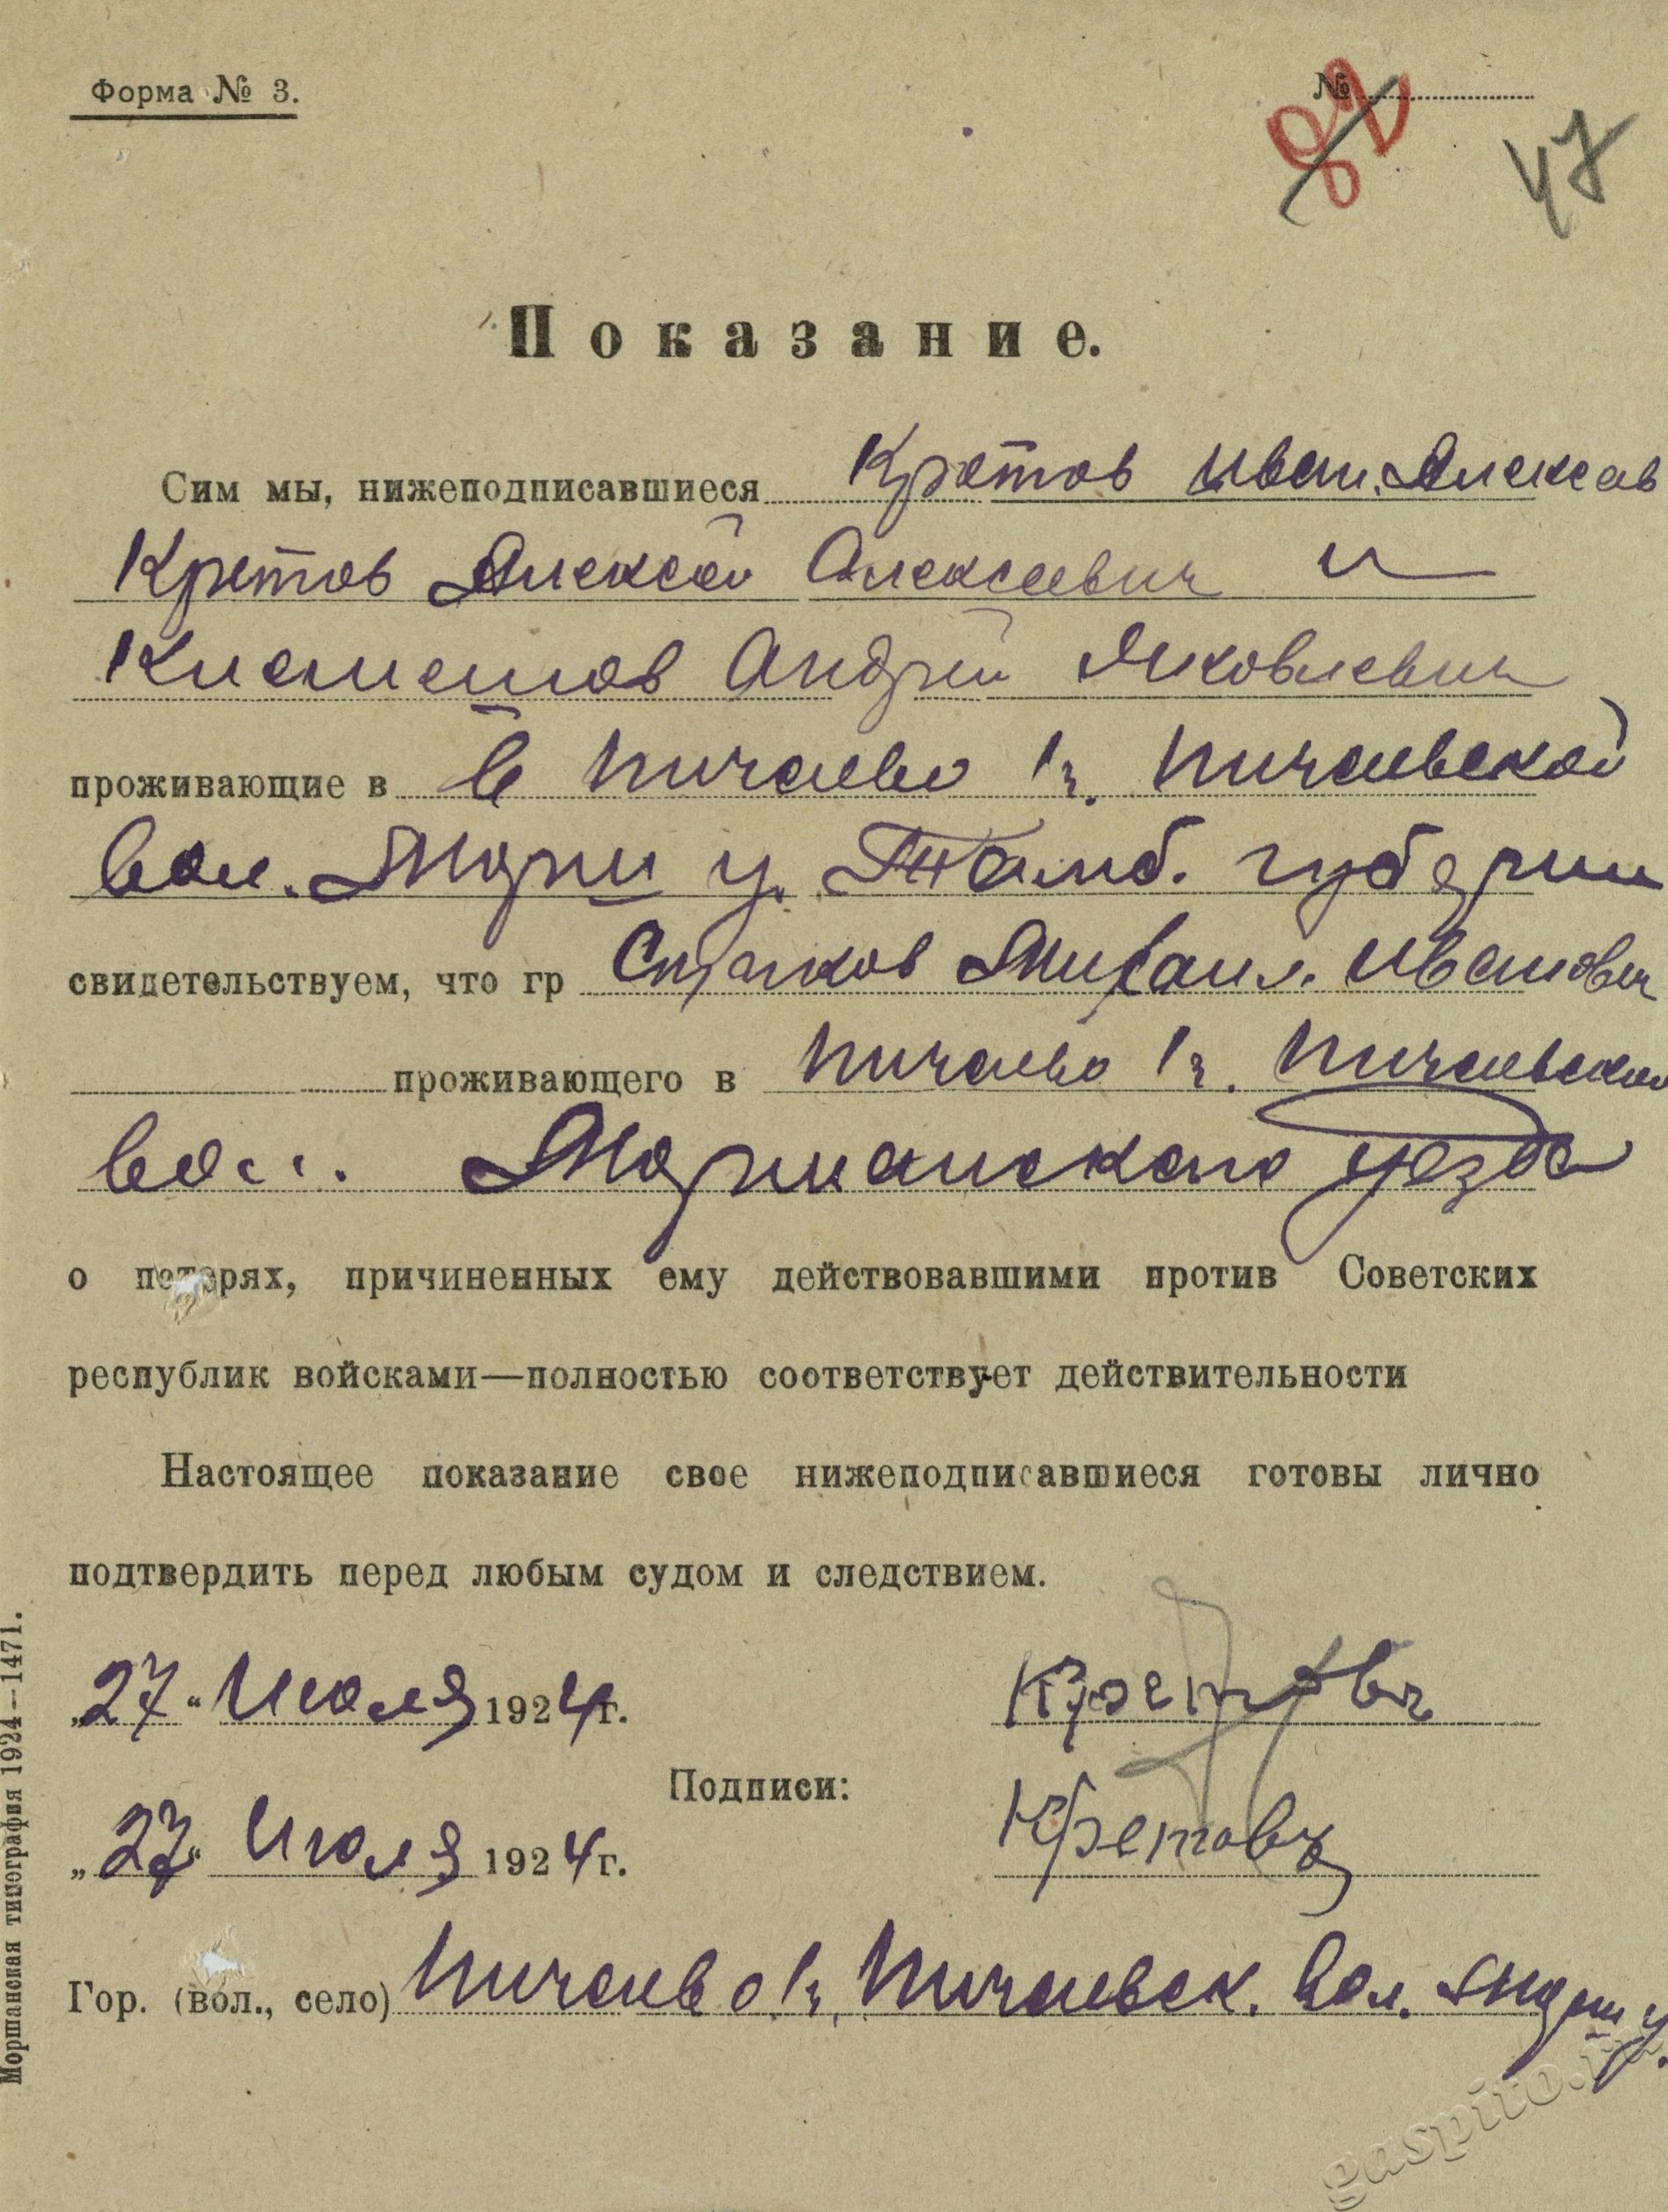 Форма № 3.
№
82
47
Показание.
Сим мы, нижеподписавшиеся Кретов Иван Алексав
Кретов Алексей Алексеевич и
Климентов Андрей Яковлевич
проживающие в в Пичаево 1г. Пичаевской
вол. Морш у. Тамб. губернии
свидетельствуем, что гр Михаил Иванович
проживающего в Пичаево 1г. Пичаевской
вол. Моршанского уезда
о потерях, причиненных ему действовавшими против Советских
республик войсками—полностью соответствует действительности
Настоящее показание свое нижеподписавшиеся готовы лично
подтвердить перед любым судом и следствием.
„27“ Июля 1924г. Кретовъ
Подписи:
„27“ Июля 1924г. Кретовъ
Гор. (вол., село) Пичаево 1г, Пичаевск. вол. Морш у.
Моршанская типография 1924—1471.
gaspito.ru